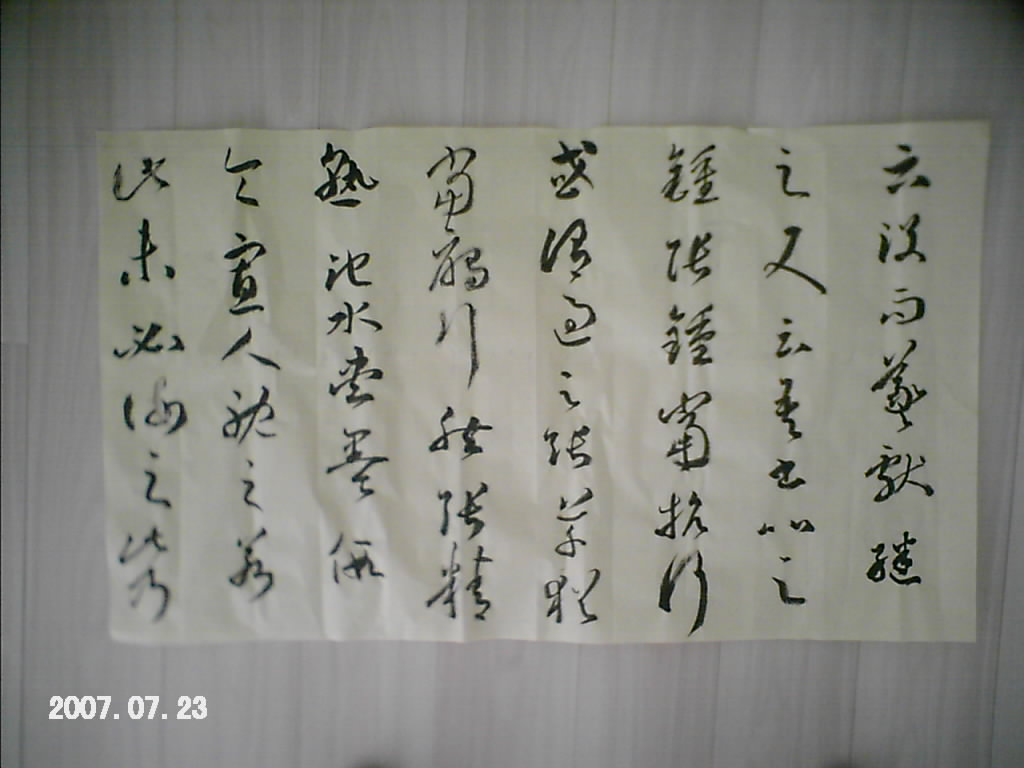 云沒而羲獻繼
之又云吾書比之
鍾張鍾當抗行
或謂過之張草猶
當鴈行然張精
熟池水盡墨假
令寡人耽之若
此未必謝之此乃
2007.07.23